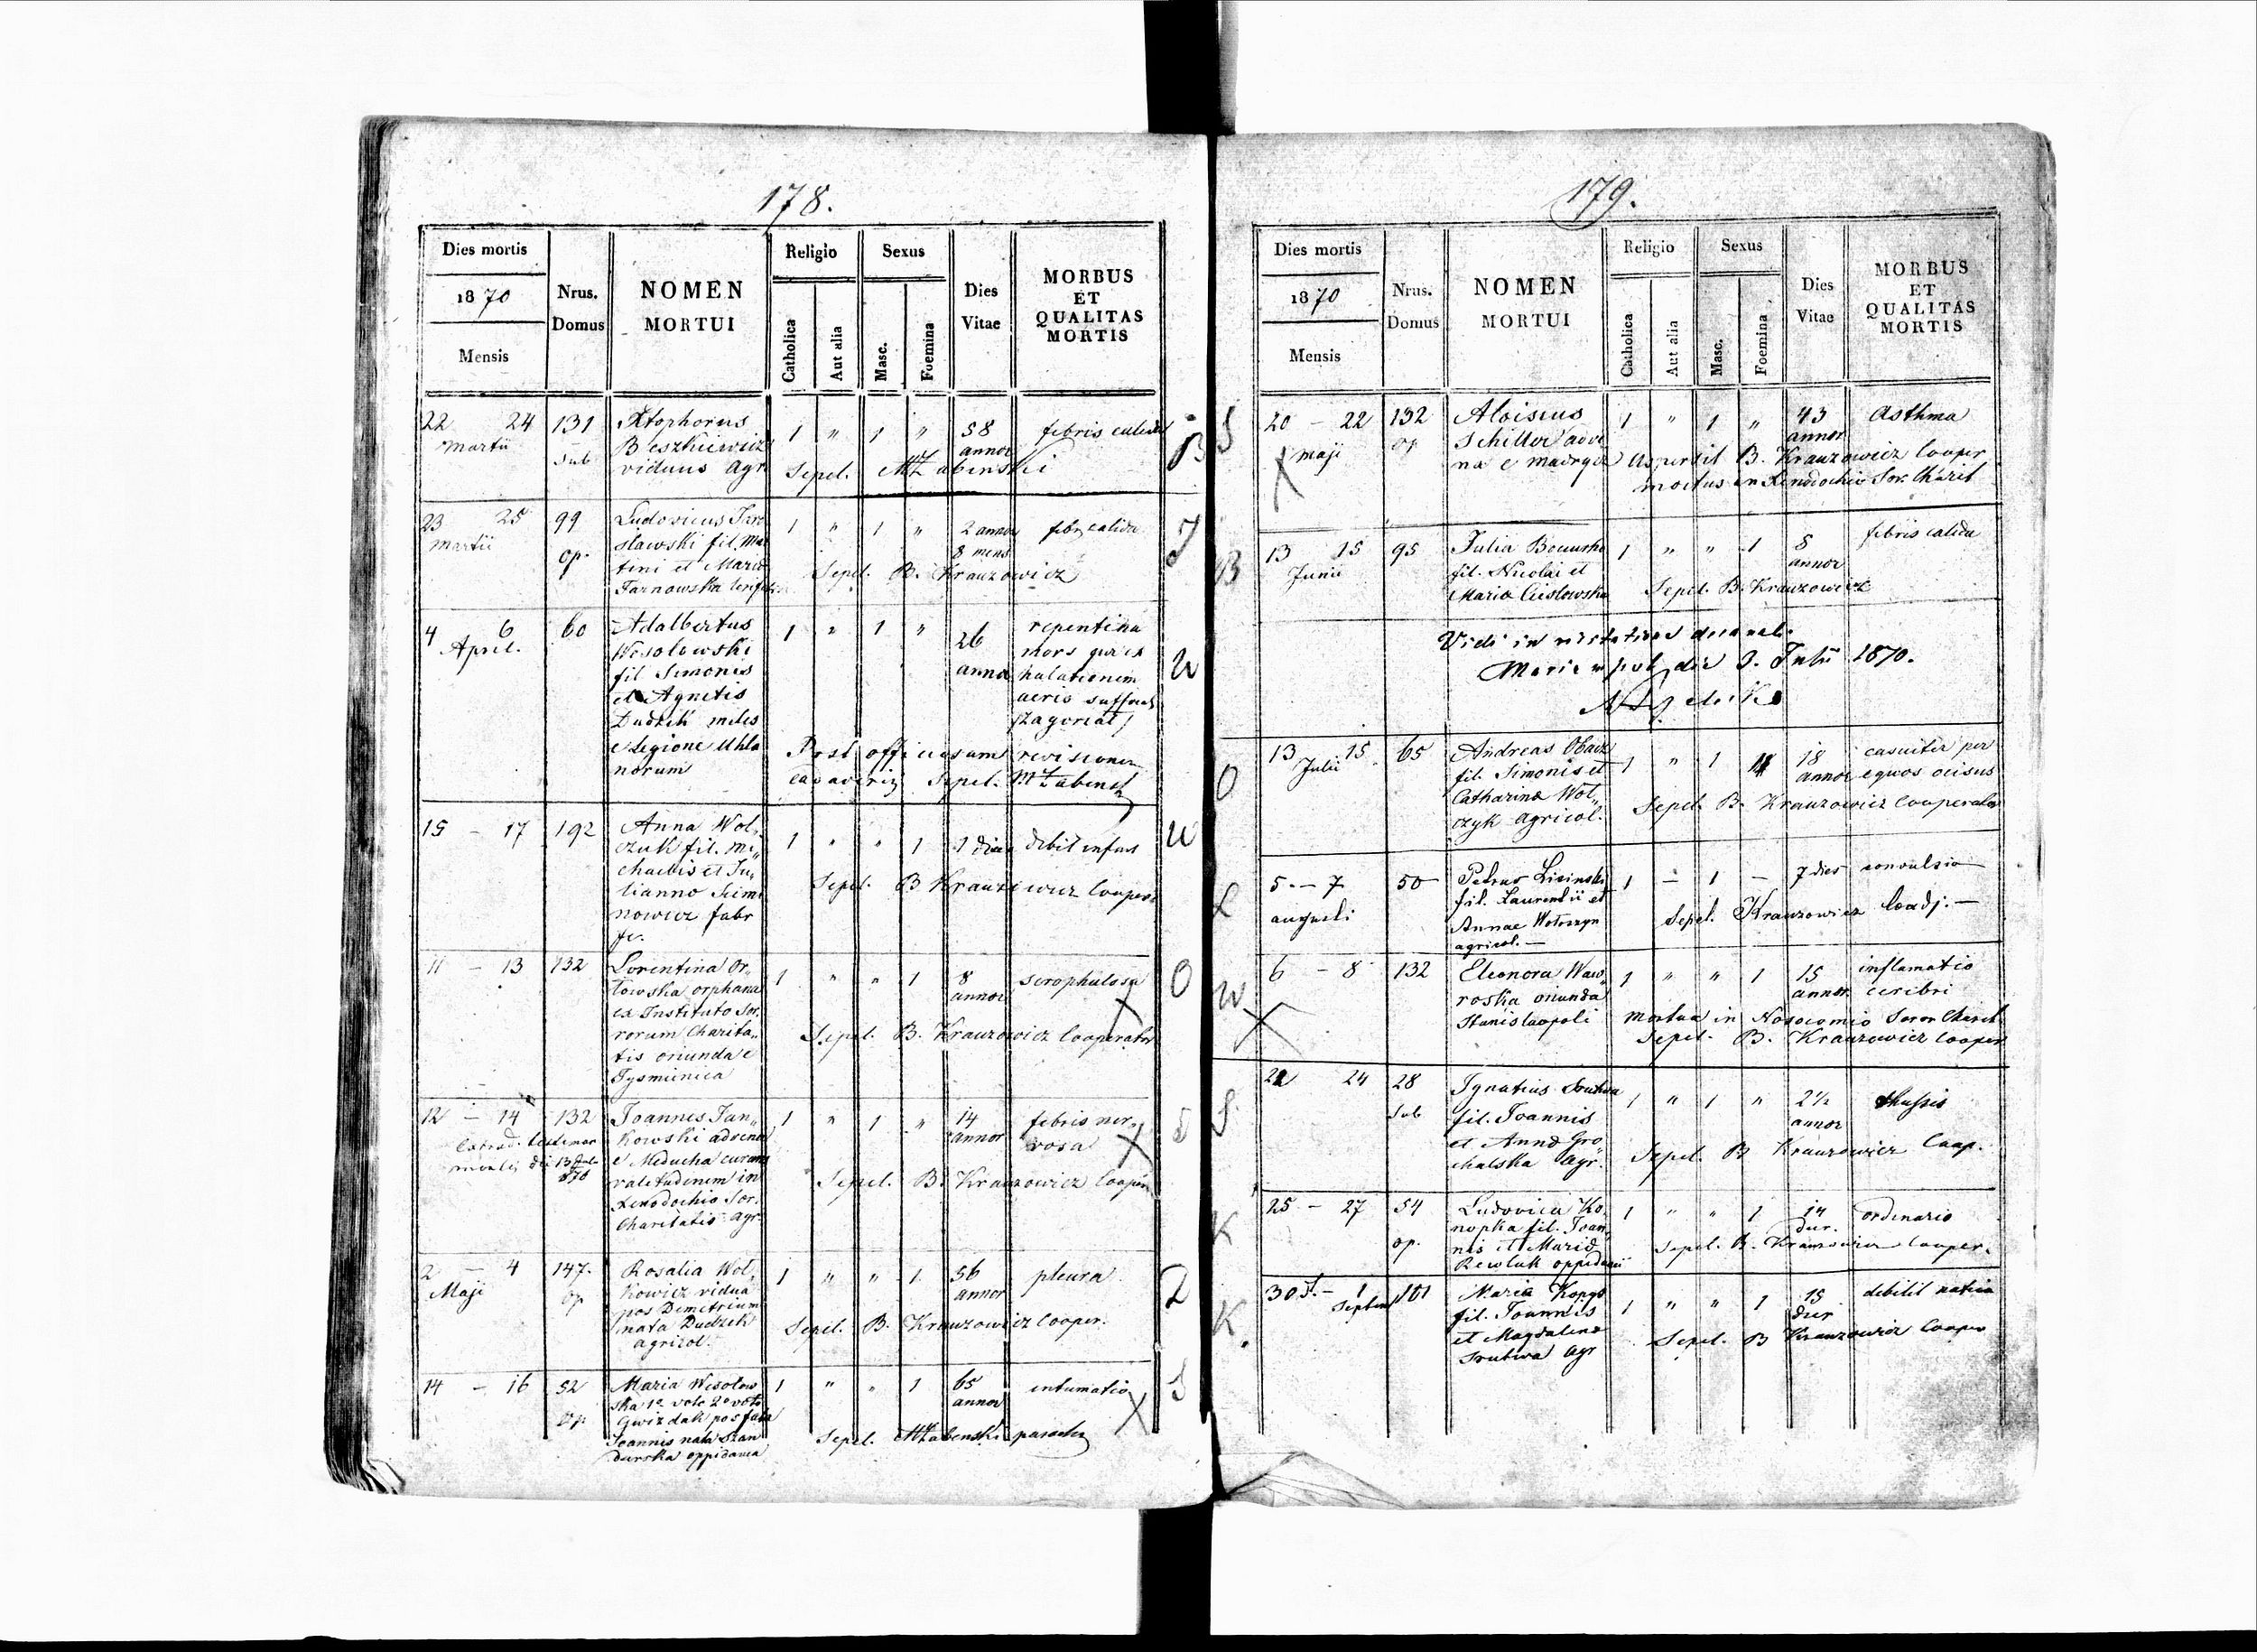 178.
Dies mortis
1870
Mensis
Nrus.
Domus
NOMEN
MORTUI
Religio
Catholica
Aut alia
Sexus
Masc.
Foemina
Dies
Vitae
MORBUS
ET
QUALITAS
MORTIS
22 24 131 Xtophorus 1 " 1 " 58 febris calida
Martii Sub Beszkiewicz annor
viduus Agr Sepel. MŻabinski
B
23 25 99 Ludovicus Jaro 1 " 1 " 2 annor febr calida
Martii op. sławski fil. Mar 8 mens
tini et Maria Sepel. B. Krauzowicz
Tarnowska
J
4 6 60 Adalbertus 1 " 1 " 26 repentina
April. Wesołowski annor mors
fil Simonis halationem
et Agnetis aeris suffoca
Dudzik miles /zagorzał/
e Legione Uhla Post officiosam revisionem
norum cadaveris Sepel. MŻabinsk
W
15 - 17 192 Anna Wol„ 1 " " 1 1 dia debil infans
czuk fil. Mi„
chaelis et Ju„ Sepel. B Krauzowicz Cooper
lianna Szimo
nowicz fabr
fer.
W
11 - 13 132 Lorentina Or„ 1 " " 1 8 scrophulosa
łowska orphana annor
ex Instituto Sor.
rorum Charita„ Sepel. B. Krauzowicz Cooperator
tis oriunda e
Tysmienica
O
12 - 14 132 Joannes Jan„ 1 " 1 " 14 febris ner„
kowski advena annor vosa
e Meducha curans
valetudinem in Sepel. B. Krauzowicz Cooper
Xenodochio Sor.
Charitatis Agr.
2 - 4 147. Rosalia Wol„ 1 " " 1. 56 pleura
Maji op kowicz vidua annor
pos Demetrium
nata Dudzik Sepel. B. Krauzowicz Cooper.
agricol.
14 - 16 52 Maria Wesołow 1 " " 1 65 intumatio
op ska 1º voto 2º voto annor
Gwizdak pos fata
Joannis nata Szan Sepel. MŻabinski parochus
durska oppidana
S
179.
Dies mortis
1870
Mensis
Nrus.
Domus
NOMEN
MORTUI
Religio
Catholica
Aut alia
Sexus
Masc.
Foemina
Dies
Vitae
MORBUS
ET
QUALITAS
MORTIS
S
20 - 22 132 Aloisius 1 " 1 " 43 Asthma
Maji op Schiller adve annor
na e Madryca Aspersit B. Krauzowicz Cooper
mortus in Xenodochio Sor. Charit
B
13 15 95 Julia 1 " " 1 8 febris calida
Junii fil. Nicolai et annor
Maria Cisłowska Sepel. B. Krauzowicz
Vidi in visitatione decanali
Mariampol die 3. Julii 1870.
O
13 15 65 Andreas Obacz 1 " 1 18 casualiter per
Julii fil. Simonis et annor equos ocisus
Catharina Woł„ Sepel. B. Krauzowicz Cooperator
czyk agricol.
L
5. - 7 50 Petrus Lisinski 1 - 1 - 7 dies convulsio
augusti fil. Laurentii et
Annae Wołoszyn Sepel. Krauzowicz Coadj. -
agricol. -
W
6 - 8 132 Eleonora Waw„ 1 " " 1 15 inflamatio
roska oriunda annor. cerebri
Stanislaopoli Mortua in Nosocomio Soror Charit
Sepel. B. Krauzowicz Cooper
S
22 24 28 Ignatius Srutwa 1 " 1 " 2½ thussis
Sub fil. Joannis annor
et Anna Gro„
chalska Agr. Sepel. B Krauzowicz Coop.
K
25 - 27 54 Ludovica Ko„ 1 " " 1 14 ordinario
op. nopka fil. Joan„ dier.
nis et Maria Sepel. B. Krauzowicz Cooper.
Rewluk oppidanii
K.
30 - 1 101 Maria Kopyś 1 " " 1 15 debilit nativa
Septem fil. Joannis dier
et Magdalena Sepel. B Krauzowicz Cooper
Srutwa Agr